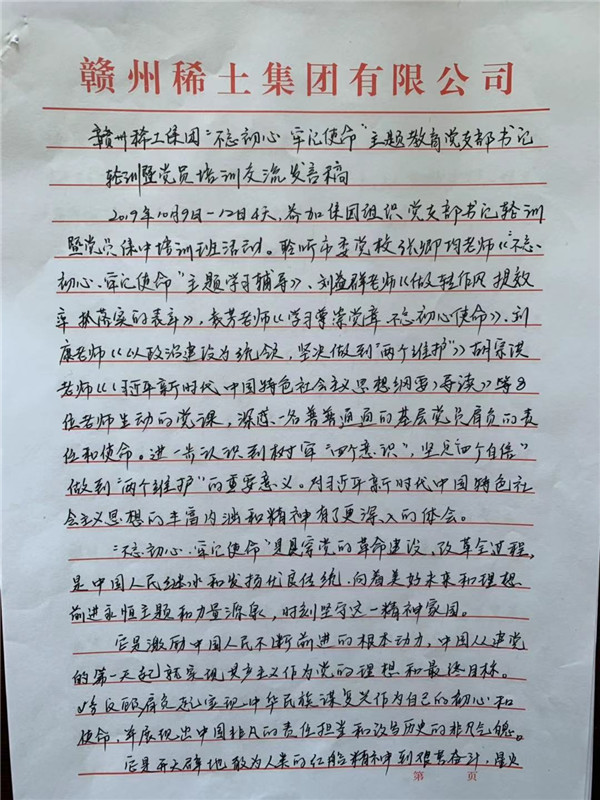 赣州稀土集团有限公司
赣州稀土集团"不忘初心 牢记使命"主题教育党支部书记
轮训暨党员培训交流发言稿
2019年10月9日—12日4天，参加集团组织党支部书记轮训
暨党员集中培训班活动。聆听市委党校张卿均老师《"不忘
初心、牢记使命"主题学习辅导》、刘益群老师《做转作风 提效
率 抓落实的表率》，袁芳老师《学习尊崇党章 不忘初心使命》、刘
康老师《以政治建设为统领，坚决做到"两个维护"》胡宗谟
老师《〈习近平新时代中国特色社会主义思想纲要〉导读》等8
位老师生动的党课，深感一名普普通通的基层党员肩负的责
任和使命。进一步认识到树牢"四个意识"，坚定"四个自信"
做到"两个维护"的重要意义。对习近平新时代中国特色社
会主义思想的丰富内涵和精神有了更深入的体会。
"不忘初心、牢记使命"是贯穿党的革命建设、改革全过程，
是中国人民继承和发扬优良传统，向着美好未来和理想
前进永恒主题和力量源泉，时刻坚守这一精神家园。
它是激励中国人民不断前进的根本动力，中国从建党
的第一天起就实现共产主义作为党的理想和最终目标。
义务反顾肩负起实现中华民族谋复兴作为自己的初心和
使命，年展现出中国非凡的责任担当和改写历史的非凡气魄。
它是开天辟地敢为人类的红船精神到艰苦奋斗，星火
第 页